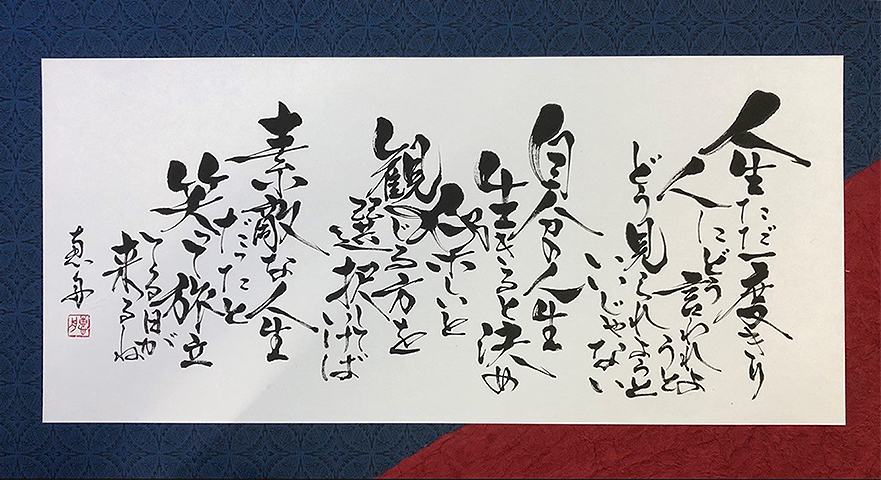 人生ただ一度きり
人にどう言われようと
どう見られようと
いいじゃない
自分の人生
生きると決め
楽しいと
観じる方を
選択していけば
素敵な人生
だったと
笑って旅立
てる日が
来るね
恵舟